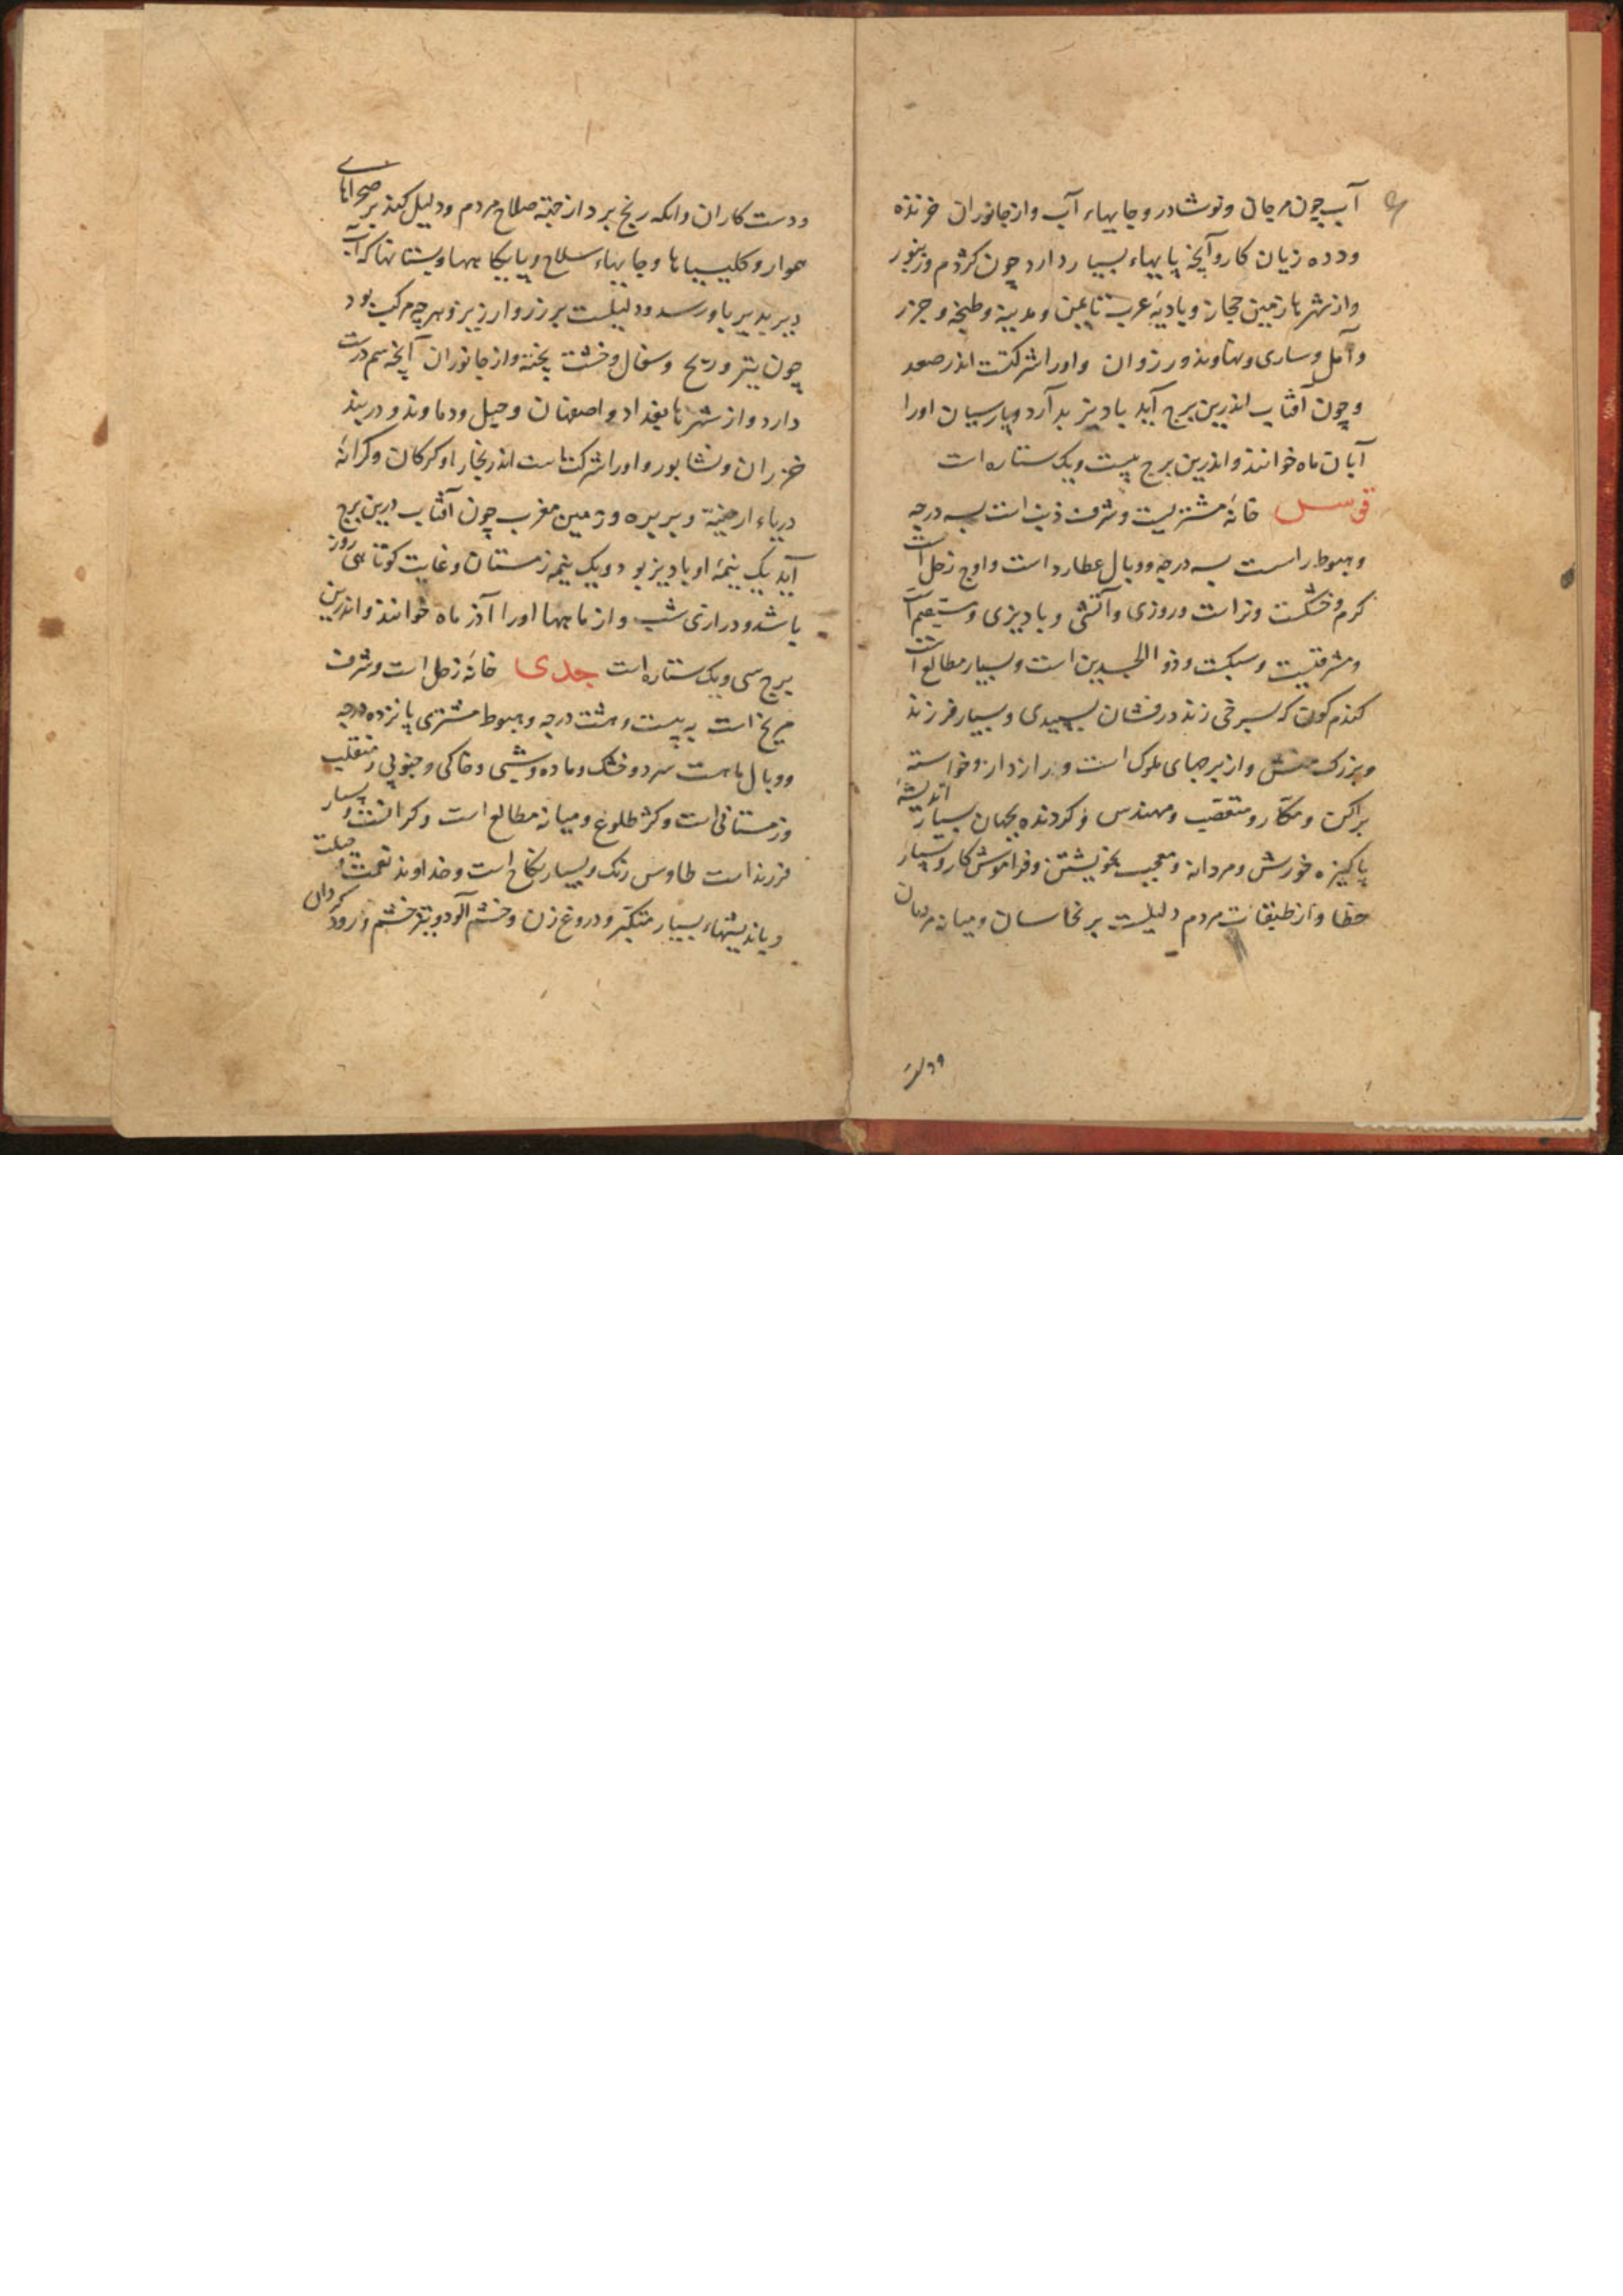 آب چون مرجان ونوشادر وجایهاء آب واز جانوران خزنده
ودده زیان کار وآنچه پایهاء بسیار دارد چون کژدم وزنبور
واز شهرها زمین حجاز وبادیهٔ عرب تا یمن ومدینه وطنجه وخزر
وآمل وساری ونهاوند ورزوان واورا شرکتست اندر صعد
وچون آفتاب اندرین برج آید بادیز بدآرد وپارسیان اورا
آبان ماه خوانند واندرین برج بیست ویک ستاره است
قوس خانهٔ مشتریست وشرف ذنب است بسه درجه
وهبوط راست بسه درجه ووبال عطارد است واوج زحل است
کرم وخشکست ونر است وروزی وآتشی وبادیزی ومستقیم است
ومشرقیست وسبکست وذو الجسدین است وبسیار مطالع است
کندم کون که بسرخی زند درفشان بسپیدی وبسیار فرزند
وبزرک منش واز برجهای ملوک است وراز دار وخواسته
پراکن ومکار ومتعصب ومهندس وکردنده بجهان بسیار اندیشهٔ
پاکیزه خورش ومردانه ومعجب بخویشتن وفراموش کار وبسیار
خطا واز طبقات مردم دلیلست بر نخاسان ومیانه مردمان
ودست کاران وانکه رنج برد از جهة صلاح مردم ودلیل کند بر صحراهای
هموار وکلیسیاها وجایهاء سلاح وپایکاهها وبستانها که آب
دیر بدیر باو رسد ودلیلست بر زر وارزیز وهر چه مرکب بود
چون شیر وریح وسفال وخشت پخته واز جانوران آنچه سم درست
دارد واز شهرها بغداد واصفهان وجیل ودماوند ودربند
خزران ونشابور واورا شرکتاست اندر بخارا وکرکان وکرانهٔ
دریاء ارمنیة وبربره وزمین مغرب چون آفتاب درین برج
آید یک نیمهٔ او بادیز بود ویک نیمه زمستان وغایت کوتاهی روز
باشد ودرازی شب واز ماهها اورا آذر ماه خوانند واندرین
برج سی ویک ستاره است جدی خانهٔ زحل است وشرف
مریخ است به بیست وهشت درجه وهبوط مشتری پانزده درجه
ووبال ماهست سرد وخشک وماده وشبی وخاکی وجنوبی ومنقلب
وزمستانی است وکژ طلوع ومیانه مطالع است وکرانست وبسیار
فرزند است طاوس رنک وبسیار نکاح است وخداوند نعمت وحیلت
وباندیشهاء بسیار متکبر ودروغ زن وخشم آلود وتیز خشم وزود کردان